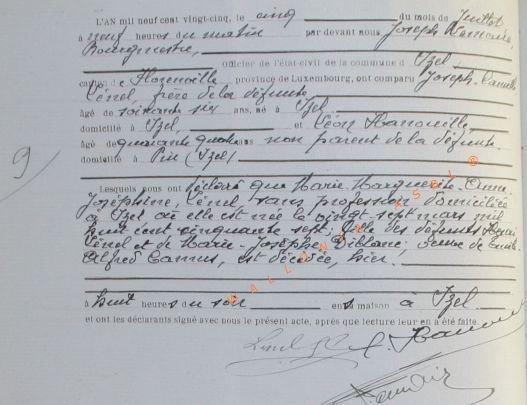 L'AN mil neuf cent vingt-cinq, le cinq du mois de Juillet
à neuf heures du matin par devant nous Joseph Lemaire,
Bourgmestre,
Officier de l'état-civil de la commune d Izel,
canton de Florenville, province de Luxembourg, ont comparu Joseph-Camille
Lénel, frère de la défunte,
âgé de soixante six ans, né à Izel,
domicilié à Izel, et Léon Hanouille
Agé de quarante quatre ans non parent de la défunte
domicilié à Pin (Izel)
9
Lesquels nous ont déclaré que Marie-Marguerite-Anne-
Joséphine, Lénel sans profession domiciliée
à Izel où elle est née le vingt-sept mars mil
huit cent cinquante sept; fille des défunts Henri
Lénel et de Marie-Josèphe Diblanc; veuve de Emile
Alfred Camus, est décédée, hier.
WALLONIA ASBL ®
à huit heures du soir en sa maison à Izel
et ont les déclarants signé avec nous le présent acte, après que lecture leur en a été faite.
Lenel L. Hanouille
Lemaire